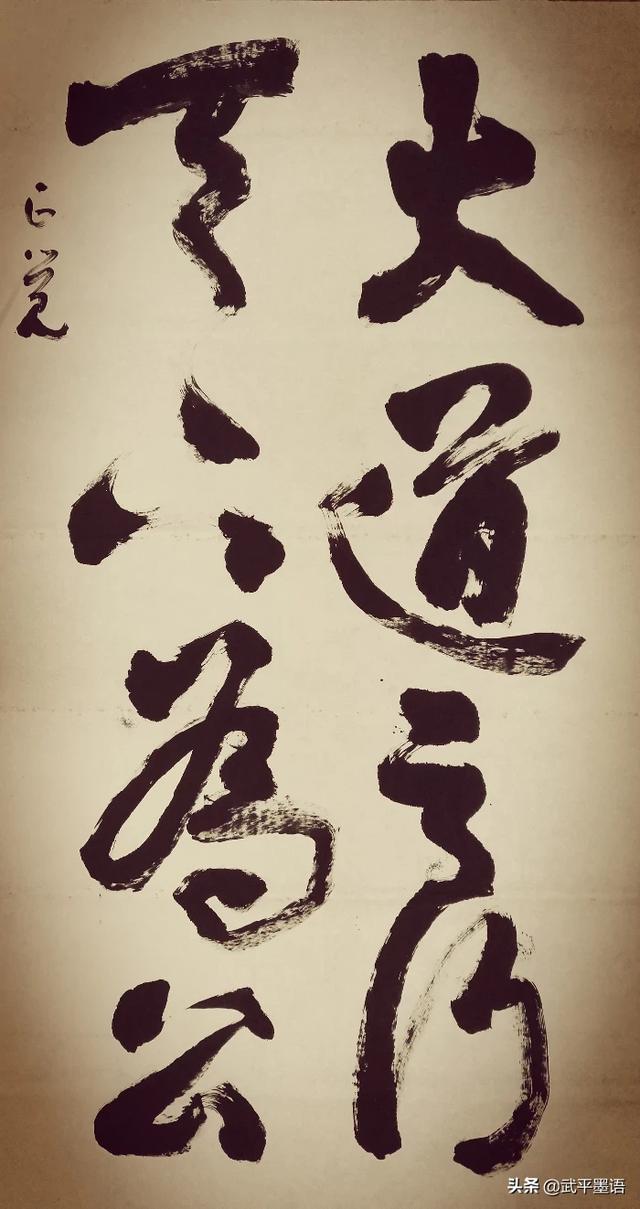 大道之行
天下為公
正覚
头条 @武平墨语